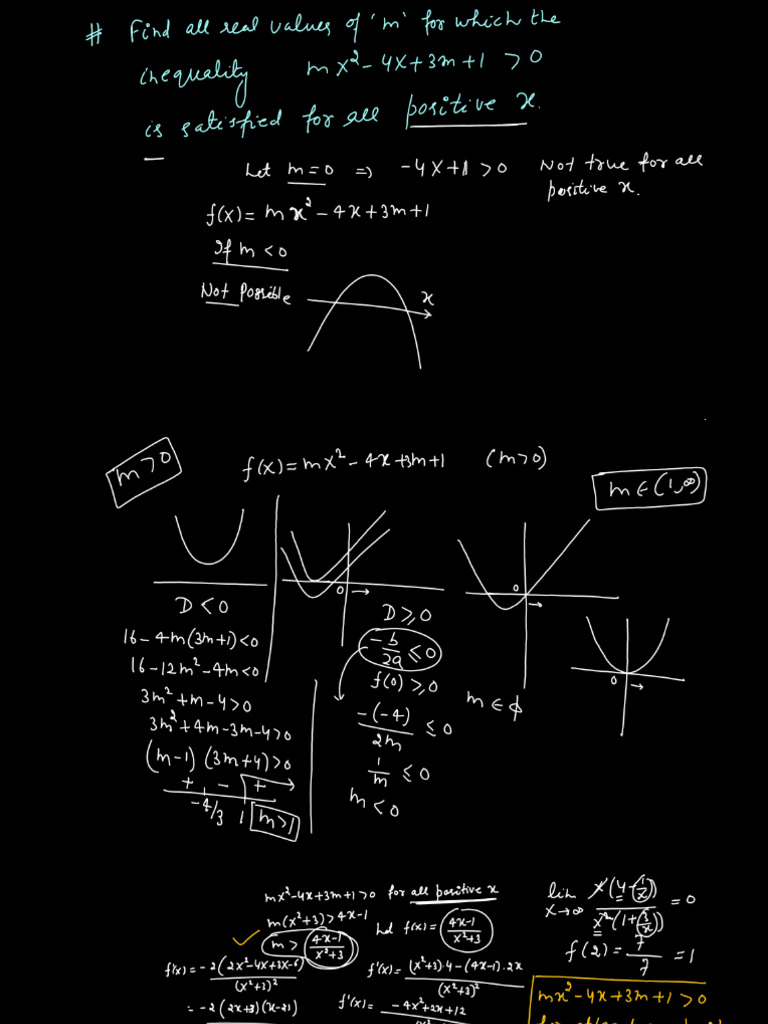 # Find all real values of 'm' for which the
inequality mx²-4x+3m+1 >0
is satisfied for all positive x.
Let m=0 ⇒ -4x+1 >0 Not true for all
positive x.
f(x)= mx²-4x+3m+1
If m<0
Not Possible
x
m>0
f(x)=mx²-4x+3m+1 (m>0)
m∈(1,∞)
0
0
0
D<0
16-4m(3m+1)<0
16-12m²-4m<0
3m²+m-4>0
3m²+4m-3m-4>0
(m-1)(3m+4)>0
+ - +
-4/3 1
m>1
D≥0
-b/2a ≤0
f(0)≥0
-(-4)/2m ≤0
1/m ≤0
m<0
m∈ϕ
mx²-4x+3m+1>0 for all positive x
m(x²+3)>4x-1
m> (4x-1)/(x²+3)
Let f(x)= (4x-1)/(x²+3)
f'(x)= ((x²+3)·4-(4x-1)·2x)/(x²+3)²
f'(x)= -4x²+2x+12
f'(x)= -2(2x²-4x+3x-6)/(x²+3)²
= -2(2x+3)(x-2)
lim x→∞ x(4-1/x)/x²(1+3/x) =0
f(2)= 7/7 =1
mx²-4x+3m+1>0